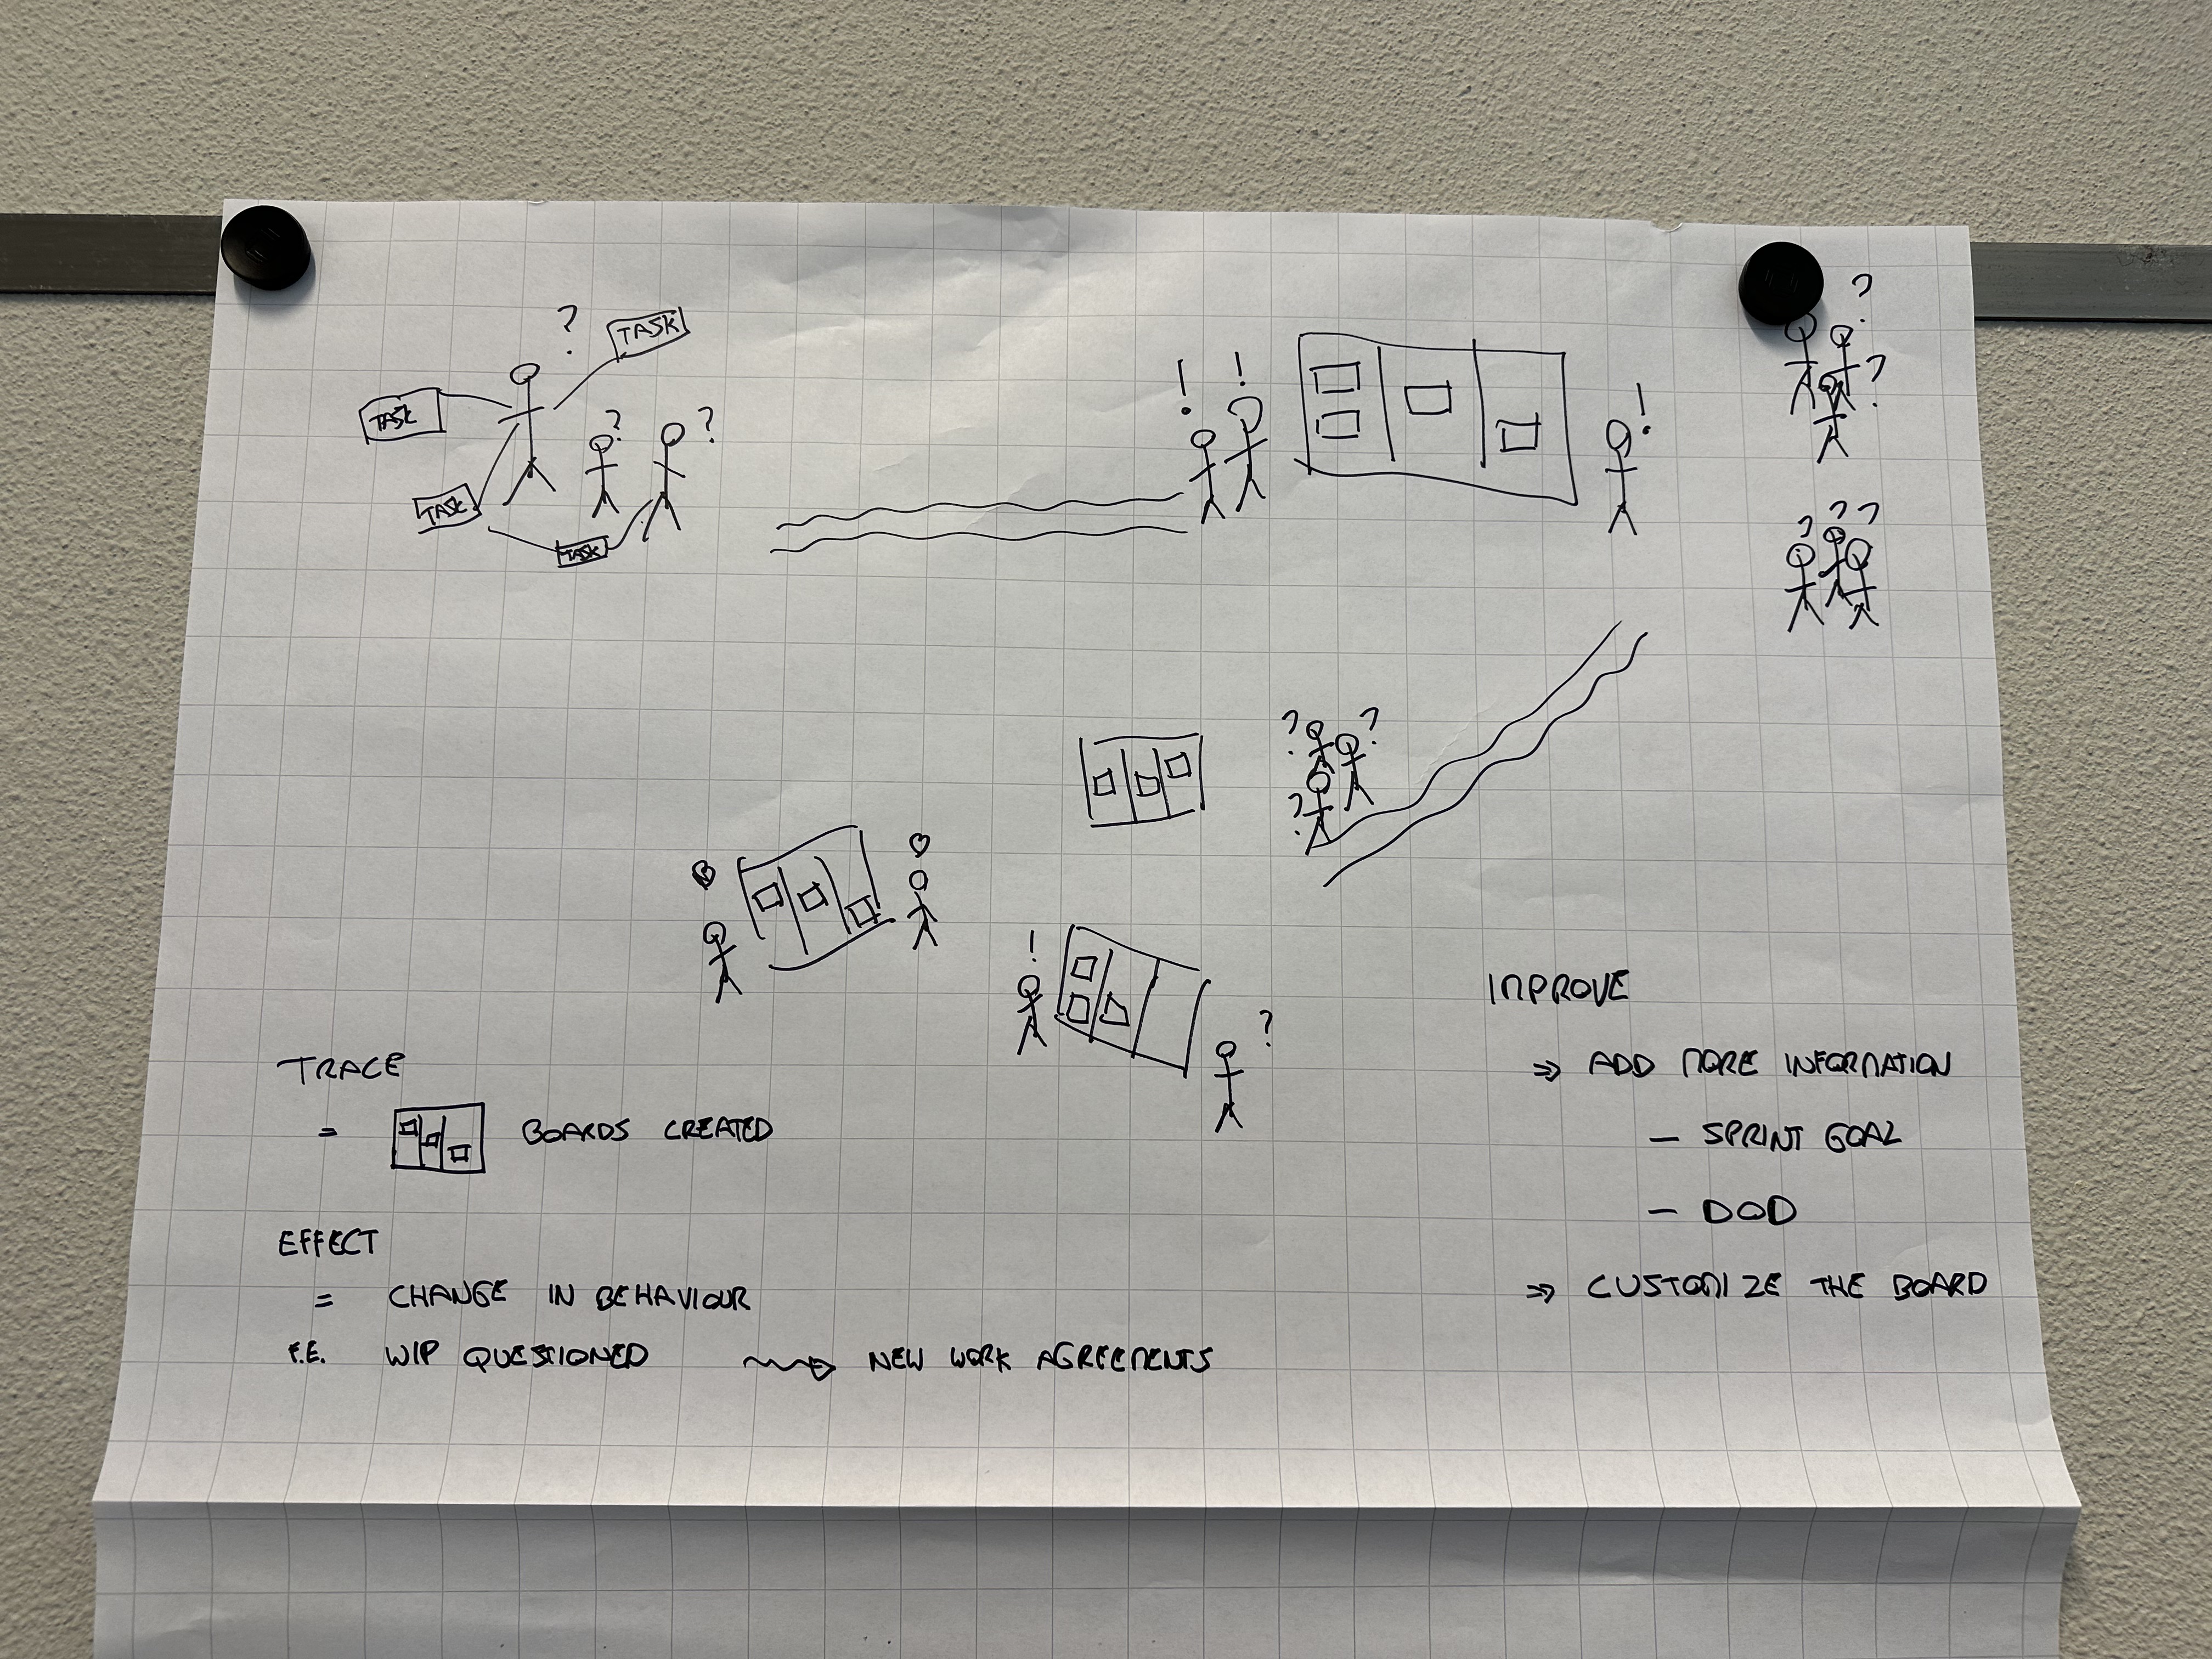 ?
TASK
TASK
?
?
TASK
TASK
! !
!
?
?
? ? ?
? ?
?
! ?
TRACE
= BOARDS CREATED
EFFECT
= CHANGE IN BEHAVIOUR
F.E. WIP QUESTIONED NEW WORK AGREEMENTS
IMPROVE
⇒ ADD MORE INFORMATION
— SPRINT GOAL
— DOD
⇒ CUSTOMIZE THE BOARD